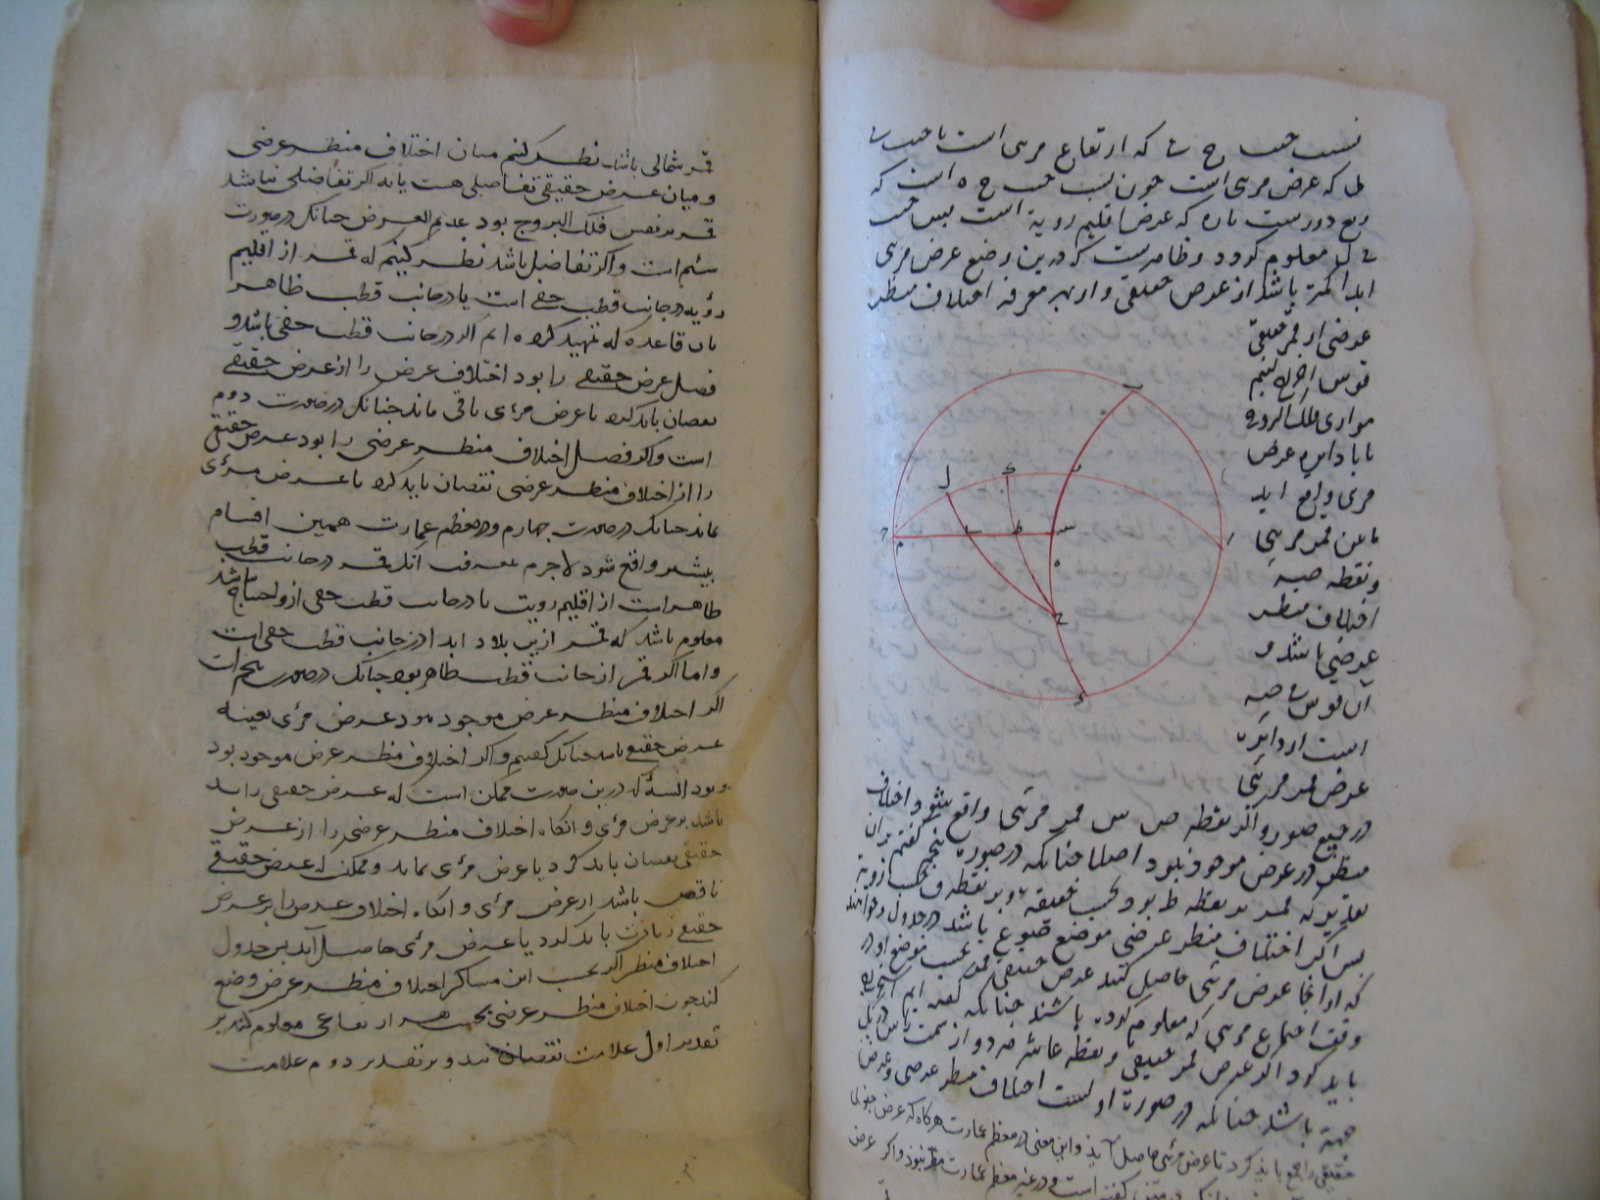 نسبت جیب ح ی که ارتفاع مرئی است با جیب ی
ل که عرض مرئی است چون نسبت جیب ح ه است که
ربع دورست با ره که عرض اقلیم رویة است بس جیب
ی ل معلوم کردد و ظاهریست که درین وضع عرض مرئی
ابدا کمتر باشد از عرض حقیقی و از بهر معرفه اختلاف منظر
عرضی از قمر حقیقی
قوس اخراج کنیم
موازی فلک البروج
تا با دایره عرض
مرئی واقع اید
مابین قمر مرئی
و نقطه صه
اختلاف منظر
عرضی باشد و
آن قوس ی صه
است از دایره
عرض قمر مرئی
در جمیع صور و اکر نقطه ص س قمر مرئی واقع شود اختلاف
منظر در عرض موجود نبود اصلا چنانکه در صورة پنجم کفتیم بران
تقدیر که قمر بر نقطه ط بود بحسب حقیقة و بر نقطه ف بحسب رویة
بس اکر اختلاف منظر عرضی موضع قمر باشد در جدول و خواهند
که از انجا عرض مرئی حاصل کنند عرض حقیقی قمر بحسب موضع او در
وقت اجتماع مرئی که معلوم کرده باشند چنانکه کفته ایم استخراج
باید کرد اکر عرض قمر حقیقی و نقطه عاشر هر دو از سمت راس در یک
جهة باشد چنانکه در صورة اولست اختلاف منظر عرضی و عرض
حقیقی را جمع باید کرد تا عرض مرئی حاصل آید و این معنی در معظم عمارت هرکاه که عرض جنوبی
است و در غیر معظم عمارت نبود و اکر عرض
قمر شمالی باشد نظر کنیم میان اختلاف منظر عرضی
و میان عرض حقیقی تفاضلی هست یا نه اکر تفاضلی نباشد
قمر بر نفس فلک البروج بود عدیم العرض چنانک در صورت
سیم است و اکر تفاضل باشد نظر کنیم که قمر از اقلیم
رؤیه در جانب قطب خفی است یا در جانب قطب ظاهر
بان قاعده که تمهید کرده ایم اکر در جانب قطب خفی باشد و
فضل عرض حقیقی را بود اختلاف عرض را از عرض حقیقی
نقصان باید کرد تا عرض مرئی باقی ماند چنانک در صورت دوم
است و اکر فضل اختلاف منظر عرضی را بود عرض حقیقی
را از اختلاف منظر عرضی نقصان باید کرد تا عرض مرئی
بماند چنانک در صورت چهارم و در معظم عمارت همین اقسام
بیشتر واقع شود لاجرم بمعرفت انک قمر در جانب قطب
ظاهر است از اقلیم رویت یا در جانب قطب خفی ازو احتیاج باشد
معلوم باشد که قمر ازین بلاد ابدا از جانب قطب خفی است
و اما اکر قمر از جانب قطب ظاهر بود چنانک در صورت پنجم است
اکر اختلاف منظر عرض موجود نبود عرض مرئی بعینه
عرض حقیقی باشد چنانک کفتیم و اکر اختلاف منظر عرض موجود بود
و بود البتة که درین صورت ممکن است که عرض حقیقی زاید
باشد بر عرض مرئی و انکاه اختلاف منظر عرضی را از عرض
حقیقی نقصان باید کرد تا عرض مرئی بماند و ممکن که عرض حقیقی
ناقص باشد از عرض مرئی و انکاه اختلاف عرض را بر عرض
حقیقی زیادت باید کرد تا عرض مرئی حاصل آید پس جدول
اختلاف منظر اکر بحسب این مساکن اختلاف منظر عرض وضع
کنند چون اختلاف منظر عرضی بحسب هر ارتفاعی معلوم کنند بر
تقدیر اول علامت نقصان نهند و بر تقدیر دوم علامت